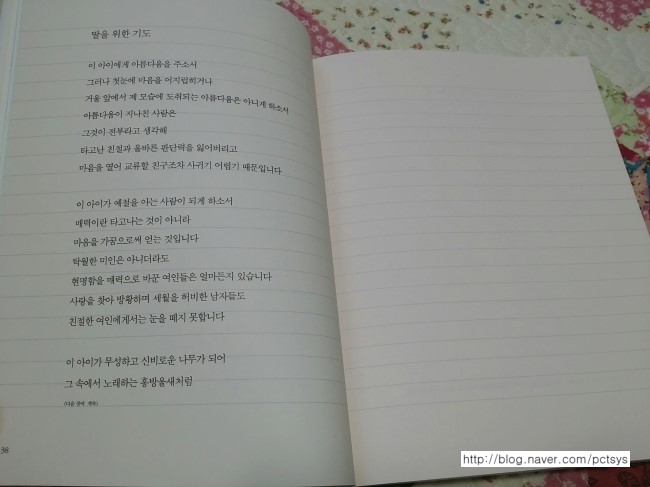 딸을 위한 기도
이 아이에게 아름다움을 주소서
그러나 첫눈에 마음을 어지럽히거나
거울 앞에서 제 모습에 도취되는 아름다움은 아니게 하소서
아름다움이 지나친 사람은
그것이 전부라고 생각해
타고난 친절과 올바른 판단력을 잃어버리고
마음을 열어 교류할 친구조차 사귀기 어렵기 때문입니다
이 아이가 예절을 아는 사람이 되게 하소서
매력이란 타고나는 것이 아니라
마음을 가꿈으로써 얻는 것입니다
탁월한 미인은 아니더라도
현명함을 매력으로 바꾼 여인들은 얼마든지 있습니다
사랑을 찾아 방황하며 세월을 허비한 남자들도
친절한 여인에게서는 눈을 떼지 못합니다
이 아이가 무성하고 신비로운 나무가 되어
그 속에서 노래하는 홍방울새처럼
(다음 장에 계속)
38
http://blog.naver.com/pctsys